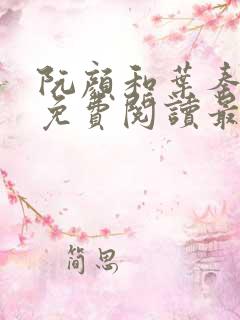 阮顏和葉奏
免費閱讀最
簡思